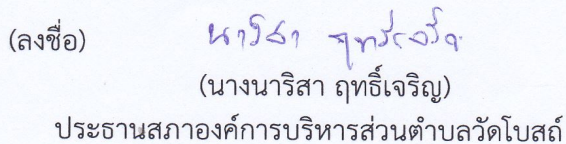 (ลงชื่อ) นาริสา ฤทธิ์เจริญ
(นางนาริสา ฤทธิ์เจริญ)
ประธานสภาองค์การบริหารส่วนตำบลวัดโบสถ์